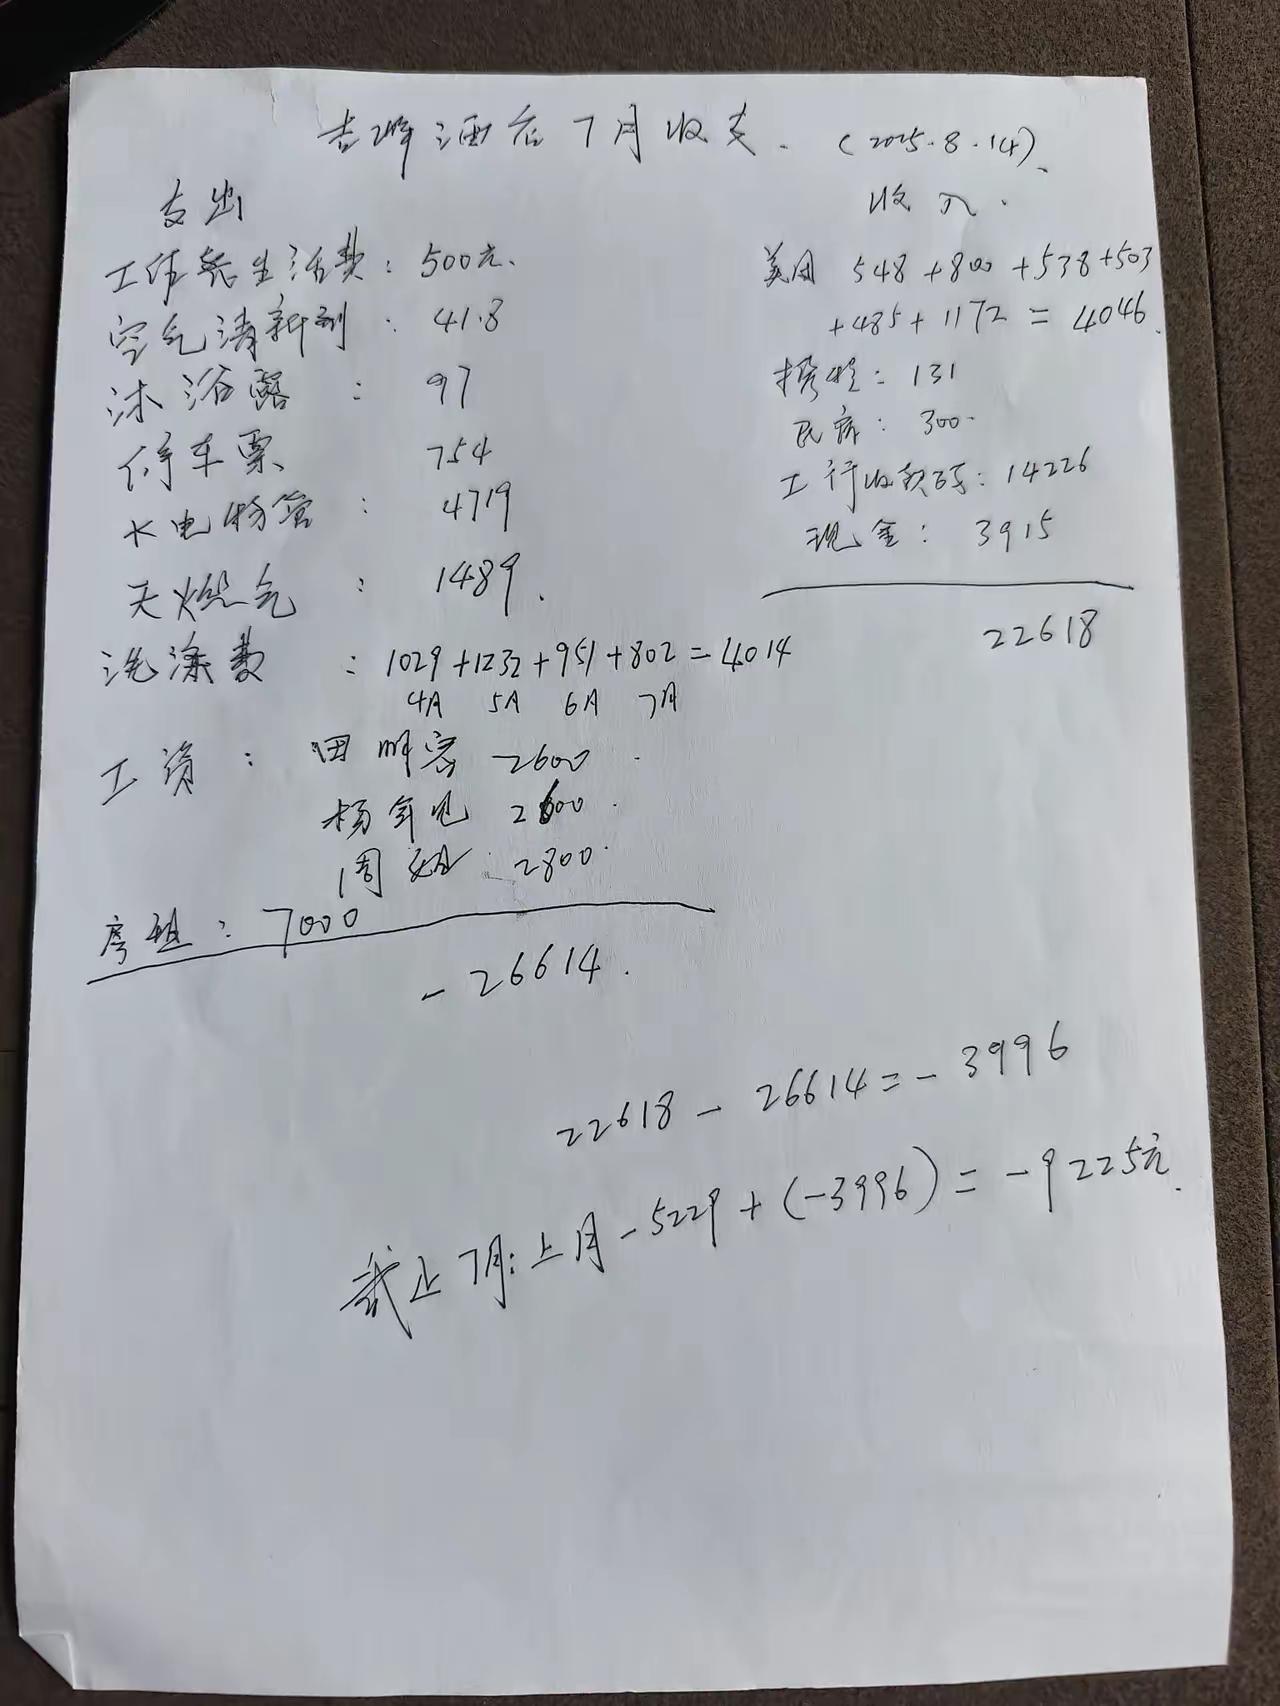 吉祥酒店7月收支. (2025.8.14).
支出
工作餐生活费: 500元.
空气清新剂: 41.8
沐浴露: 97
停车票 754
水电物管: 4719
天燃气: 1489.
洗涤费: 1029+1232+951+802=4014
4月 5月 6月 7月
工资: 田 2600.
杨 2600.
周 2800.
房租: 7000
-26614.
收入.
美团 548+800+538+503
+485+1172=4046.
携程: 131
民宿: 300.
工行收款码: 14226
现金: 3915
22618
22618-26614=-3996
截止7月:上月-5229+(-3996)=-9225元.